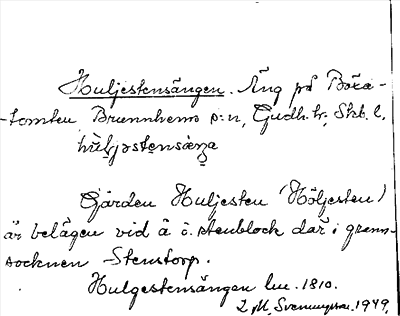 Huljestensängen. Äng på Böra-
-tomten Brunnhems s:n, Gudh. hr, Skb. l.
Gärden Huljesten (Höljesten)
är belägen vid å ö. stenblock där i grann-
socknen Stenstorp.
Hulgestensängen lm. 1810.
1949.